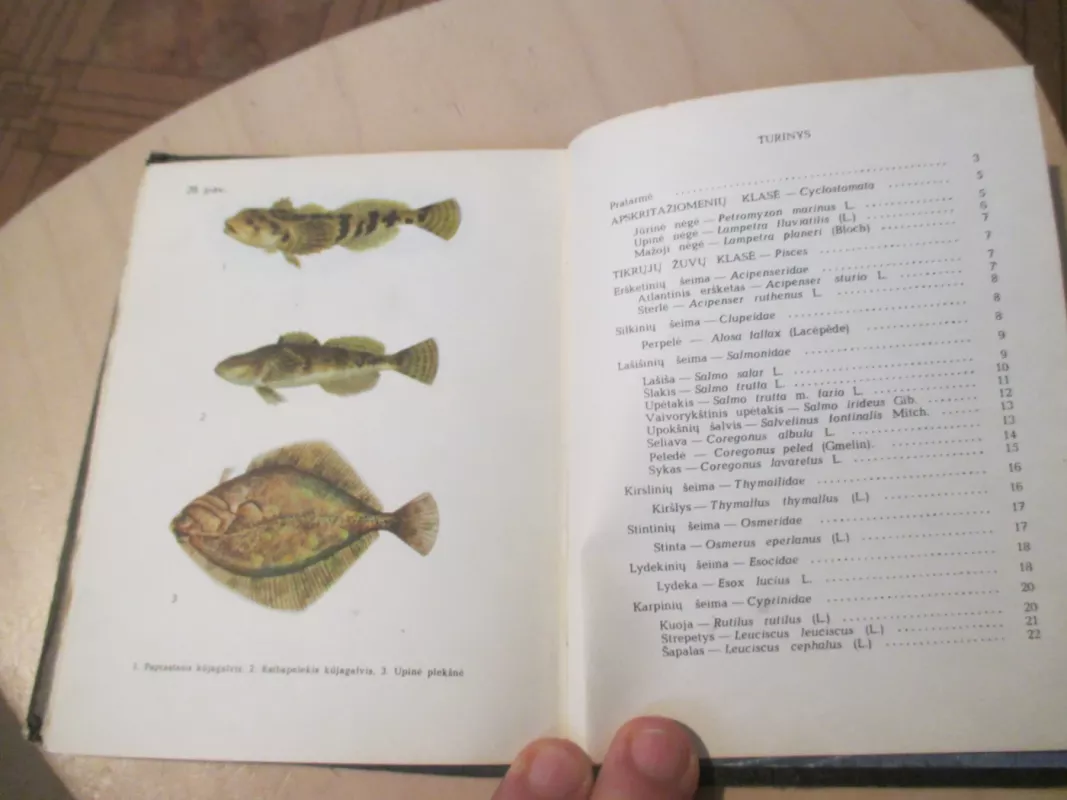 28 pav.
1
2
3
1. Paprastasis kūjagalvis. 2. Raibapelekis kūjagalvis. 3. Upinė plekšnė
TURINYS
Pratarmė . . . 3
APSKRITAŽIOMENIŲ KLASĖ — Cyclostomata . . . 5
Jūrinė nėgė — Petromyzon marinus L. . . . 5
Upinė nėgė — Lampetra fluviatilis (L.) . . . 6
Mažoji nėgė — Lampetra planeri (Bloch) . . . 7
TIKRŲJŲ ŽUVŲ KLASĖ — Pisces . . . 7
Eršketinių šeima — Acipenseridae . . . 7
Atlantinis erškėtas — Acipenser sturio L. . . . 7
Sterlė — Acipenser ruthenus L. . . . 8
Silkinių šeima — Clupeidae . . . 8
Perpelė — Alosa fallax (Lacépède) . . . 8
Lašišinių šeima — Salmonidae . . . 9
Lašiša — Salmo salar L. . . . 9
Šlakis — Salmo trutta L. . . . 10
Upėtakis — Salmo trutta m. fario L. . . . 11
Vaivorykštinis upėtakis — Salmo irideus Gib. . . . 12
Upokšnių šalvis — Salvelinus fontinalis Mitch. . . . 13
Seliava — Coregonus albula L. . . . 13
Peledė — Coregonus peled (Gmelin). . . . 14
Sykas — Coregonus lavaretus L. . . . 15
Kiršlinių šeima — Thymallidae . . . 16
Kiršlys — Thymallus thymallus (L.) . . . 16
Stintinių šeima — Osmeridae . . . 17
Stinta — Osmerus eperlanus (L.) . . . 17
Lydekinių šeima — Esocidae . . . 18
Lydeka — Esox lucius L. . . . 18
Karpinių šeima — Cyprinidae . . . 20
Kuoja — Rutilus rutilus (L.) . . . 20
Strepetys — Leuciscus leuciscus (L.) . . . 21
Šapalas — Leuciscus cephalus (L.) . . . 22